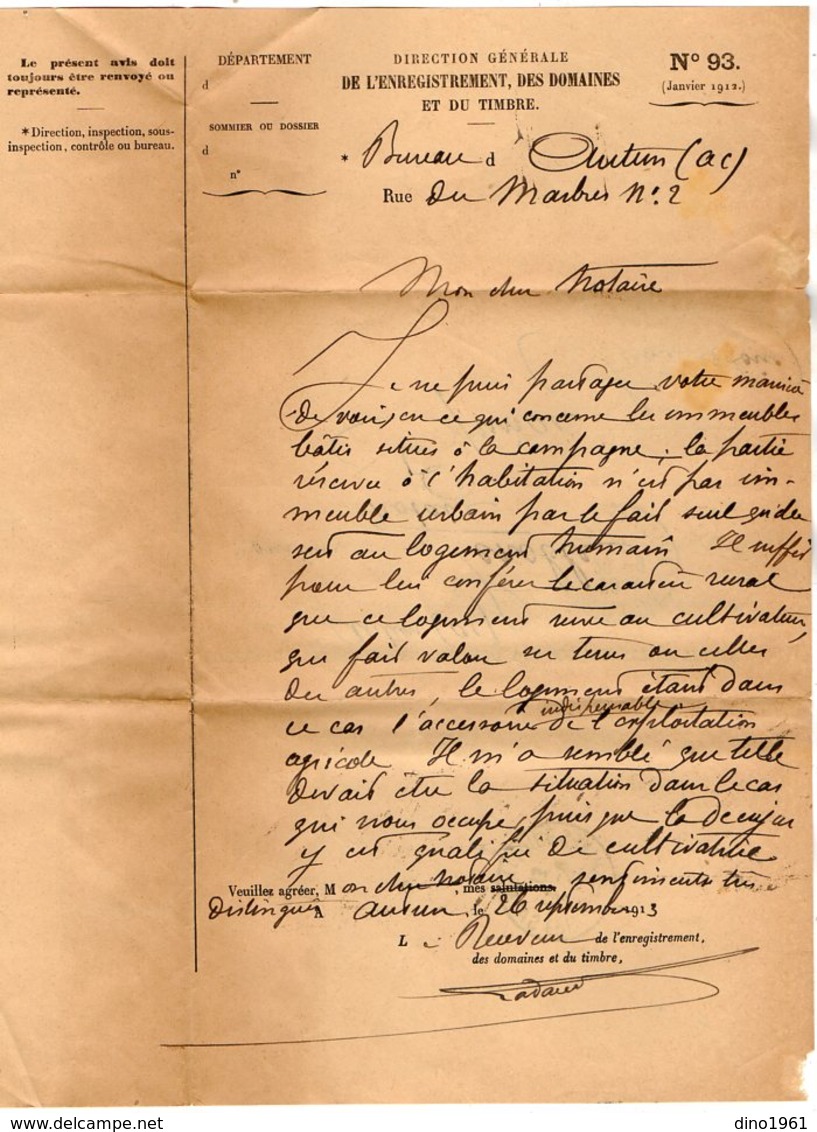 Le présent avis doit
toujours être renvoyé ou
représenté.
*Direction, inspection, sous-
inspection, contrôle ou bureau.
DÉPARTEMENT
d
SOMMIER OU DOSSIER
d
n°
DIRECTION GÉNÉRALE
DE L'ENREGISTREMENT, DES DOMAINES
ET DU TIMBRE.
N° 93.
(Janvier 1912.)
* Bureau d Autun (ac)
Rue des Marbres N° 2
Mon cher Notaire
Je ne puis partager votre manière
de voir, en ce qui concerne les immeubles
bâtis situés à la campagne; la partie
réservée à l'habitation n'est pas im-
meuble urbain par le fait seul qu'elle
sert au logement humain Il suffit
pour leur conférer le caractère rural
que ce logement serve au cultivateur,
qui fait valoir ses terres ou celles
des autres, le logement étant dans
ce cas l'accessoire indispensable de l'exploitation
agricole Il m'a semblé que telle
devait être la situation dans le cas
qui nous occupe, puisque la de cujus
y est qualifiée de cultivatrice
Veuillez agréer, Mon cher Notaire, mes salutations. sentiments très
distingués
A Autun, le 26 septembre 1913
Le Receveur de l'enregistrement,
des domaines et du timbre,
delcampe.net
dino1961